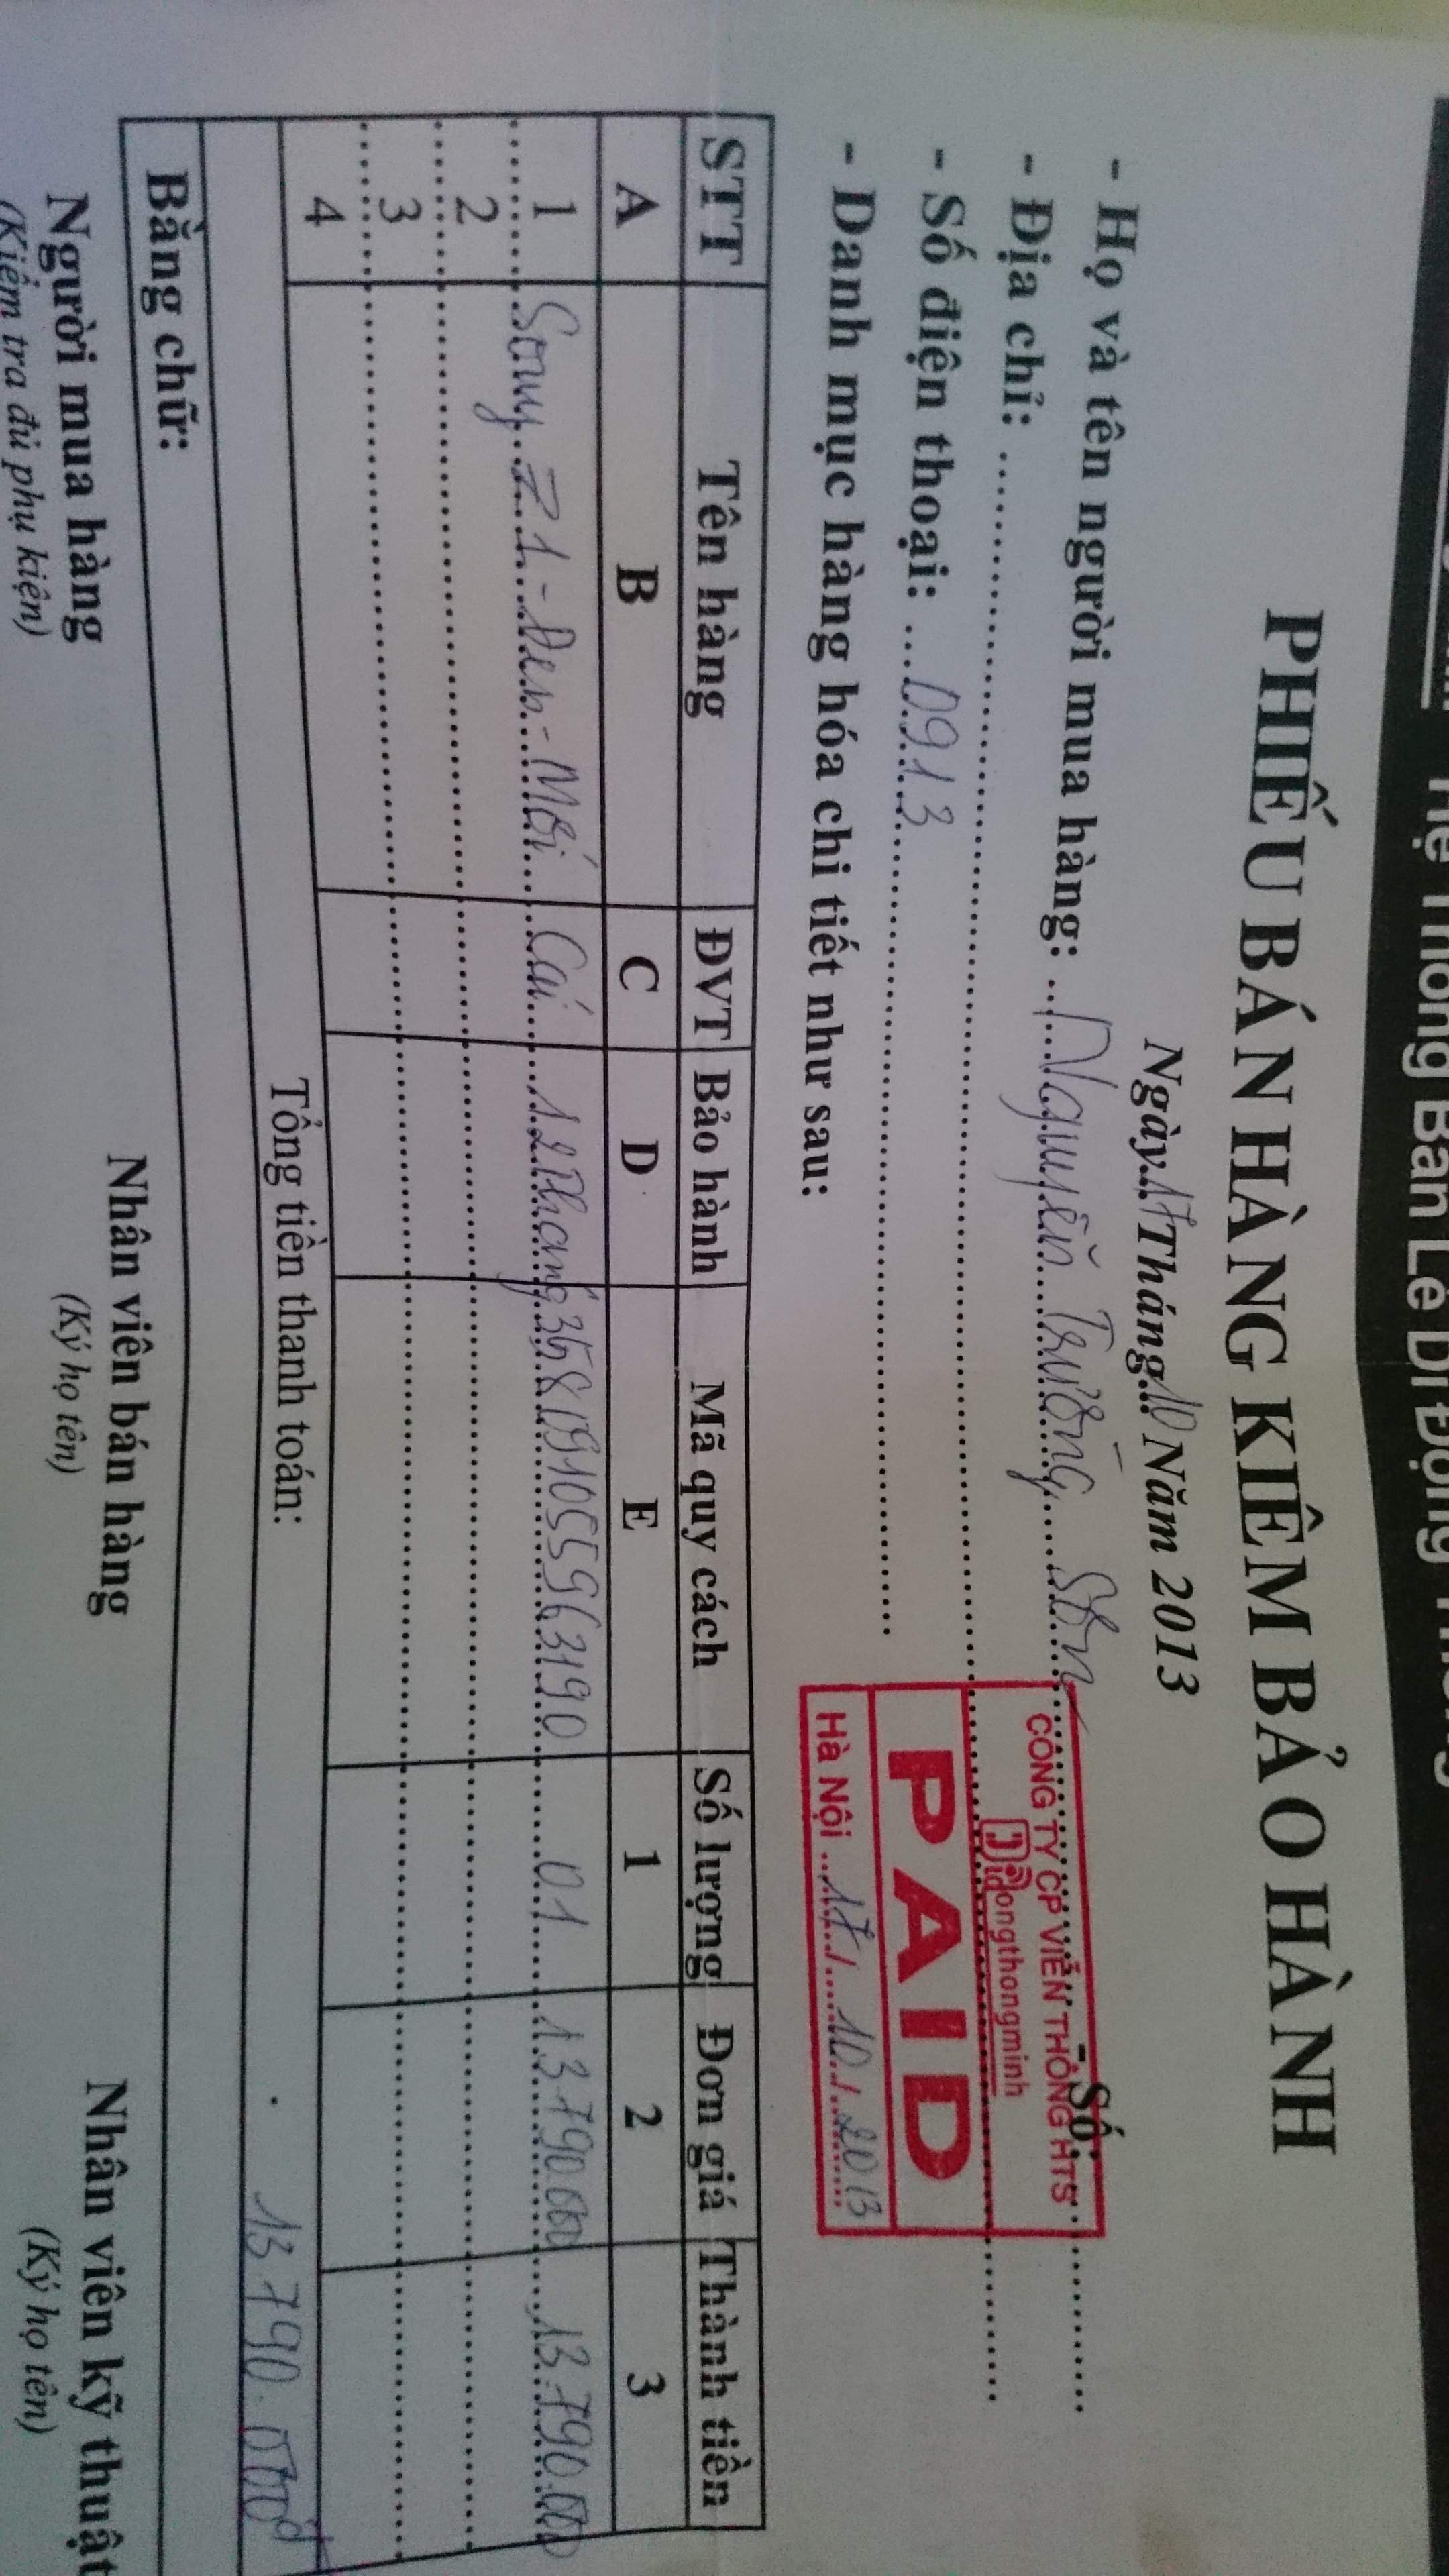 Hệ Thống Bán Lẻ Di Động
PHIẾU BÁN HÀNG KIÊM BẢO HÀNH
Ngày 17 Tháng 10 Năm 2013
Số:
- Họ và tên người mua hàng: Nguyễn Trường Sơn
- Địa chỉ:
- Số điện thoại: 0913
- Danh mục hàng hóa chi tiết như sau:
CÔNG TY CP VIỄN THÔNG HTS
didongthongminh
PAID
Hà Nội 17/10/2013
STT Tên hàng ĐVT Bảo hành Mã quy cách Số lượng Đơn giá Thành tiền
A B C D E 1 2 3
1 Sony Z1 - Đen - Mới Cái 12 tháng 358091055963190 01 13.790.000 13.790.000
2
3
4
Tổng tiền thanh toán: 13.790.000đ
Bằng chữ:
Người mua hàng Nhân viên bán hàng Nhân viên kỹ thuật
(Kiểm tra đủ phụ kiện) (Ký họ tên) (Ký họ tên)